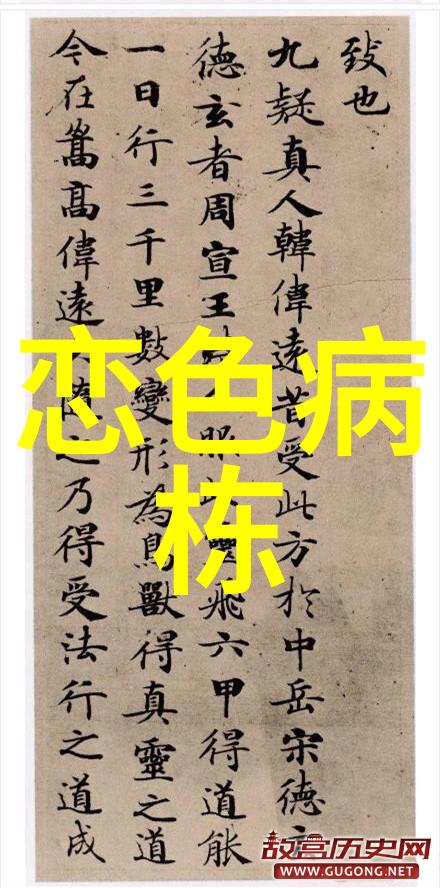 致也
九疑真人韓偉遠昔受此方於中岳宋德玄
德玄者周宣王服此靈飛六甲得道能
一日行三千里數變形為鳥獸得真靈之道
今在嵩高偉遠隨之乃得受法行之道成
恋色病
栋
故宫历史网
WWW.GUGONG.NET